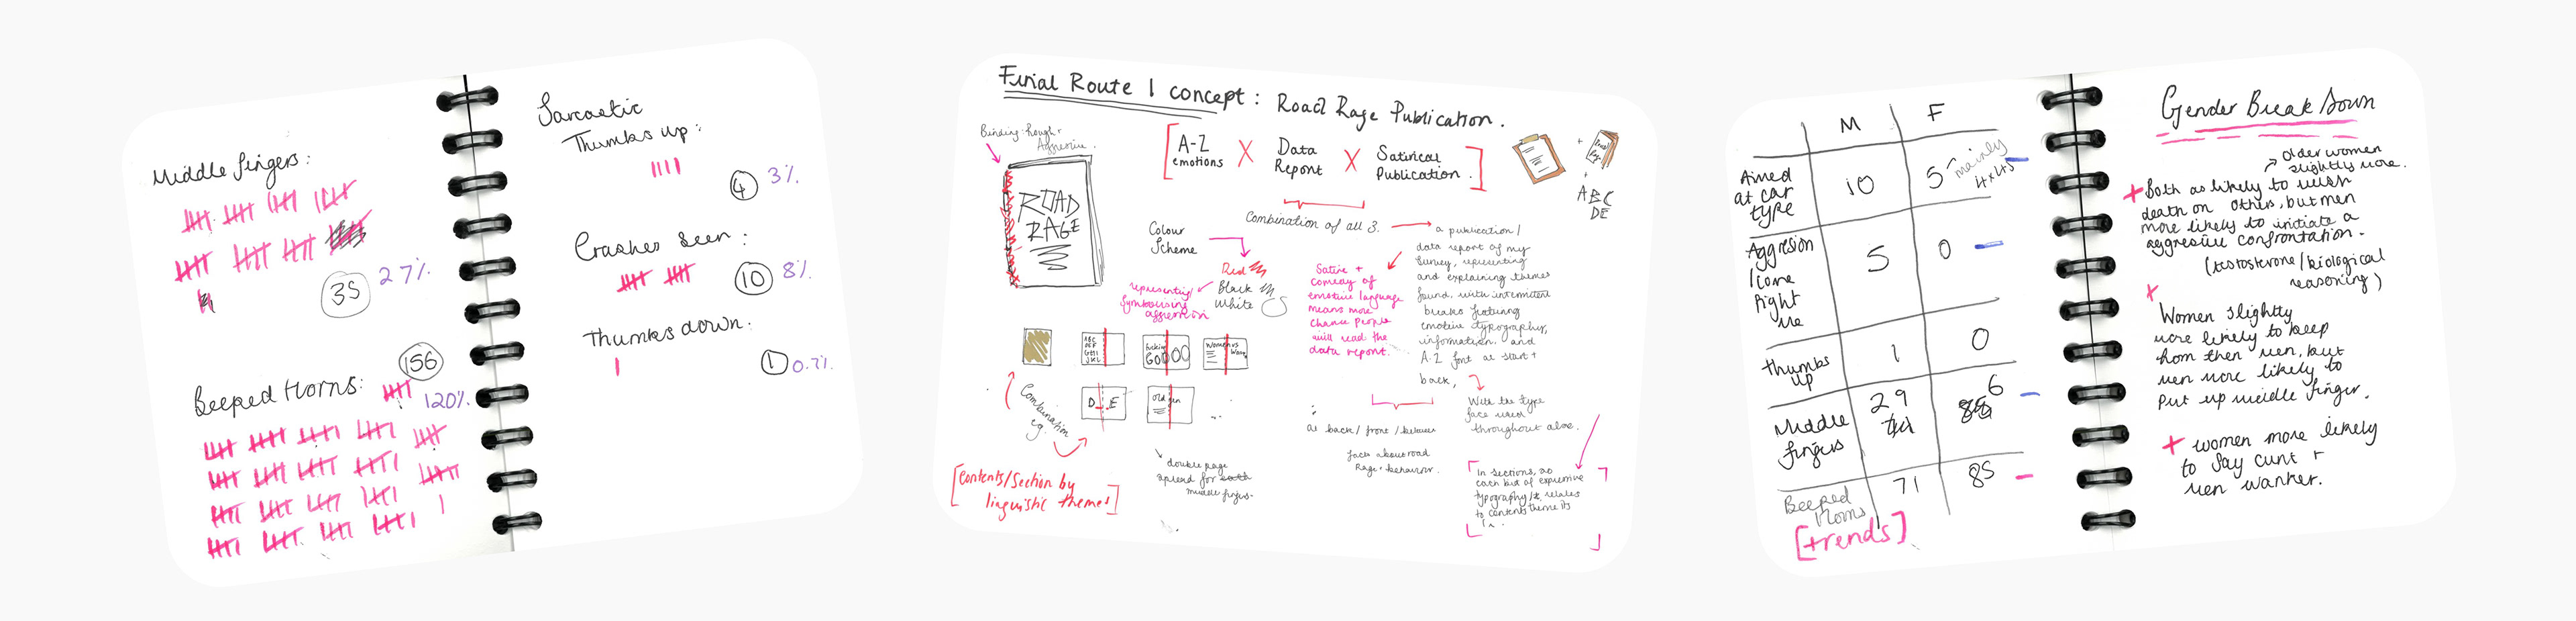 Middle fingers:
35
27%
156
Beeped Horns:
120%
Sarcastic
Thumbs up:
4
3%
Crashes seen:
10
8%
Thumbs down:
1
0.7%
Final Route 1 concept: Road Rage Publication.
Binding: Rough +
Aggressive.
ROAD
RAGE
A-Z
emotions
X
Data
Report
X
Satirical
Publication.
ABC
DE
Combination of all 3.
Colour
Scheme
Red
Black
White
representing
symbolising
aggression
Satire +
comedy of
emotive language
means more
chance people
will read the
data report.
a publication/
data report of my
survey, representing
and explaining themes
found, with intermittent
breaks featuring
emotive typography,
information. and
A-Z font at start +
back,
With the type
face used
throughout also.
ABC
DEF
GHI
JKL
Fucking
GOOOO
Women vs
D
E
Old
Combination
eg.
[Contents/Section by
linguistic themes]
double page
spread for
middle fingers.
as back/front/between
facts about road
Rage + behaviour.
In sections, so
each bit of expressive
typography/it relates
to contents theme its
in.
M
F
Aimed
at car
type
10
5
mainly
4x4s
Aggression
/come
fight
me
5
0
thumbs
up
1
0
Middle
fingers
29
6
Beeped
Horns
71
85
[trends]
Gender Break Down
older women
slightly more.
+ Both as likely to wish
death on others, but men
more likely to initiate a
aggressive confrontation.
(testosterone/biological
reasoning)
+
Women slightly
more likely to beep
horn then men, but
men more likely to
put up middle finger.
+ women more likely
to say cunt +
men wanker.